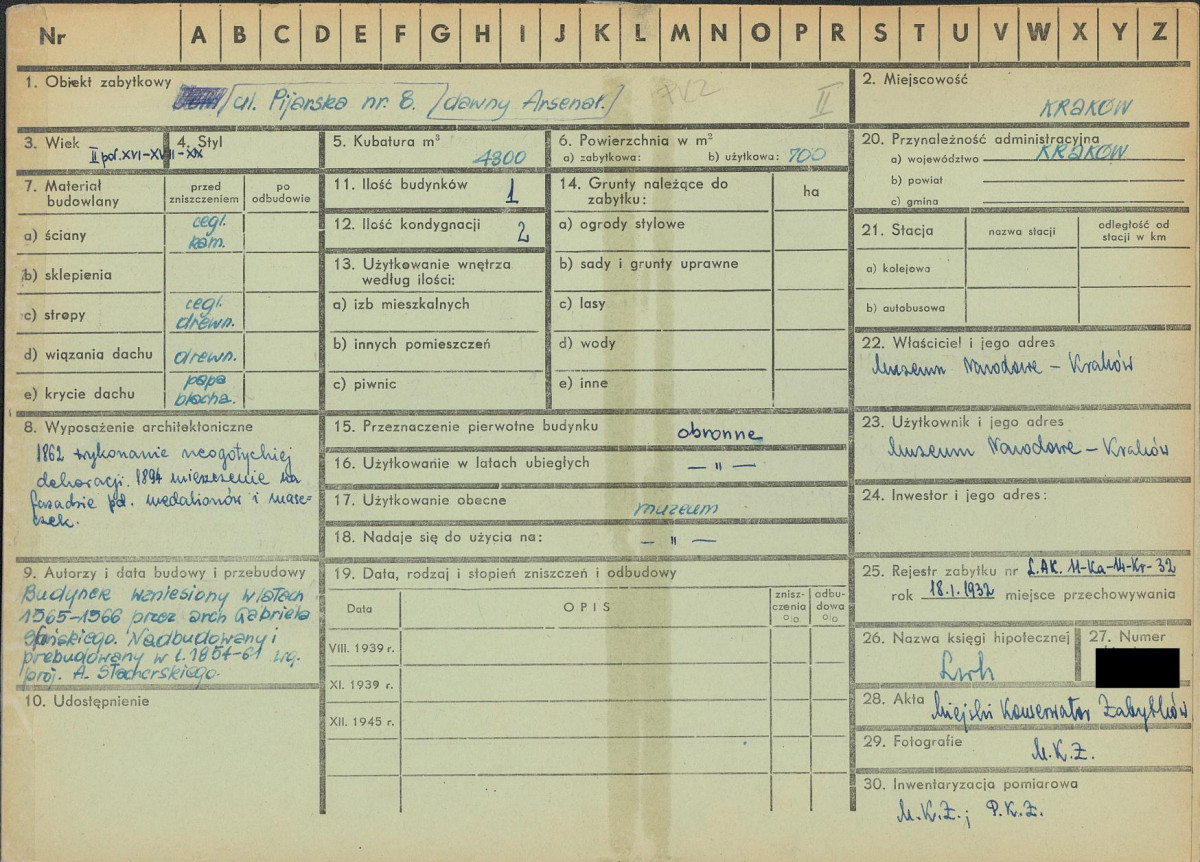 Nr A B C D E F G H I J K L M N O P R S T U V W X Y Z
1. Obiekt zabytkowy
ul. Pijarska nr. 8. [dawny Arsenał.]
II
2. Miejscowość
KRAKÓW
3. Wiek
II poł. XVI-XVIII-XIX
4. Styl
5. Kubatura m³
4300
6. Powierzchnia w m²
a) zabytkowa: b) użytkowa: 700
20. Przynależność administracyjna
a) województwo KRAKÓW
b) powiat
c) gmina
7. Materiał budowlany
przed zniszczeniem
po odbudowie
a) ściany cegl. kam.
b) sklepienia
c) stropy cegl. drewn.
d) wiązania dachu drewn.
e) krycie dachu papa blacha.
11. Ilość budynków 1
12. Ilość kondygnacji 2
13. Użytkowanie wnętrza
według ilości:
a) izb mieszkalnych
b) innych pomieszczeń
c) piwnic
14. Grunty należące do
zabytku:
ha
a) ogrody stylowe
b) sady i grunty uprawne
c) lasy
d) wody
e) inne
21. Stacja
nazwa stacji
odległość od
stacji w km
a) kolejowa
b) autobusowa
22. Właściciel i jego adres
Muzeum Narodowe - Kraków
8. Wyposażenie architektoniczne
1862 wykonanie neogotyckiej
dekoracji. 1894 mieszczenie na
fasadzie pd. medalionów i masz-
czek.
15. Przeznaczenie pierwotne budynku obronne
16. Użytkowanie w latach ubiegłych — " —
17. Użytkowanie obecne muzeum
18. Nadaje się do użycia na: — " —
23. Użytkownik i jego adres
Muzeum Narodowe - Kraków
24. Inwestor i jego adres:
9. Autorzy i data budowy i przebudowy
Budynek wzniesiony w latach
1565-1566 przez arch Gabriela
Słońskiego. Nadbudowany i
przebudowany w l. 1854-61 wg.
proj. A. Stacherskiego.
10. Udostępnienie
19. Data, rodzaj i stopień zniszczeń i odbudowy
Data
OPIS
znisz-
czenia
%
odbu-
dowa
%
VIII. 1939 r.
XI. 1939 r.
XII. 1945 r.
25. Rejestr zabytku nr L.AK. 11-Ka-14-Kr-32
rok 18.1.1932 miejsce przechowywania
26. Nazwa księgi hipotecznej
Lwh
27. Numer
28. Akta Miejski Konserwator Zabytków
29. Fotografie
M.K.Z.
30. Inwentaryzacja pomiarowa
M.K.Z.; P.K.Z.